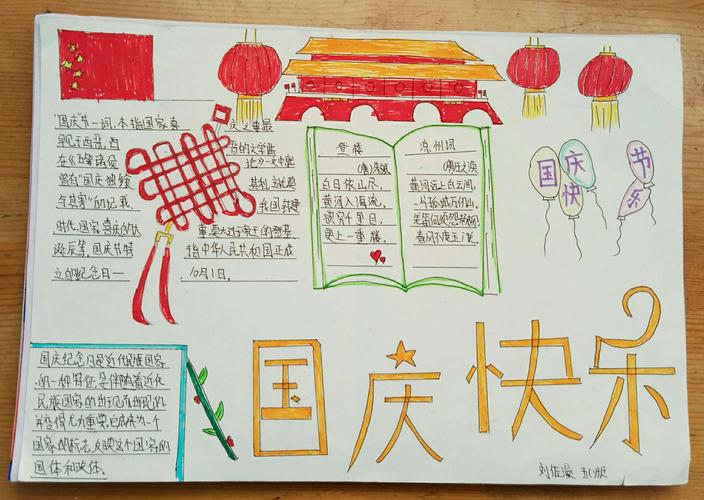 "国庆"节一词,本指国家喜 庆之事,最
早见于西晋。西 晋的文学家
在《五等诸侯 论》一文中就
曾有"国庆独飨 其利,主忧莫
与其害"的记载, 我国封建
时代,国家喜庆的大 事,莫大过于帝王的登基
诞辰等。国庆节特 指中华人民共和国正成
立的纪念日一 10月1日。
登楼
白日依山尽,
黄河入海流。
欲穷千里目,
更上一重楼。
凉州词
(唐)王之涣
黄河远上白云间,
一片孤城万仞山。
羌笛何须怨杨柳,
春风不度玉门关。
国庆节
快乐
国庆纪念日是近代民族国家
的一种特征,是伴随着近代
民族国家的出现而出现的,
并变得尤为重要。它成为一个
国家的标志,反映这个国家的
国体和政体。
国庆快乐
五(1)班